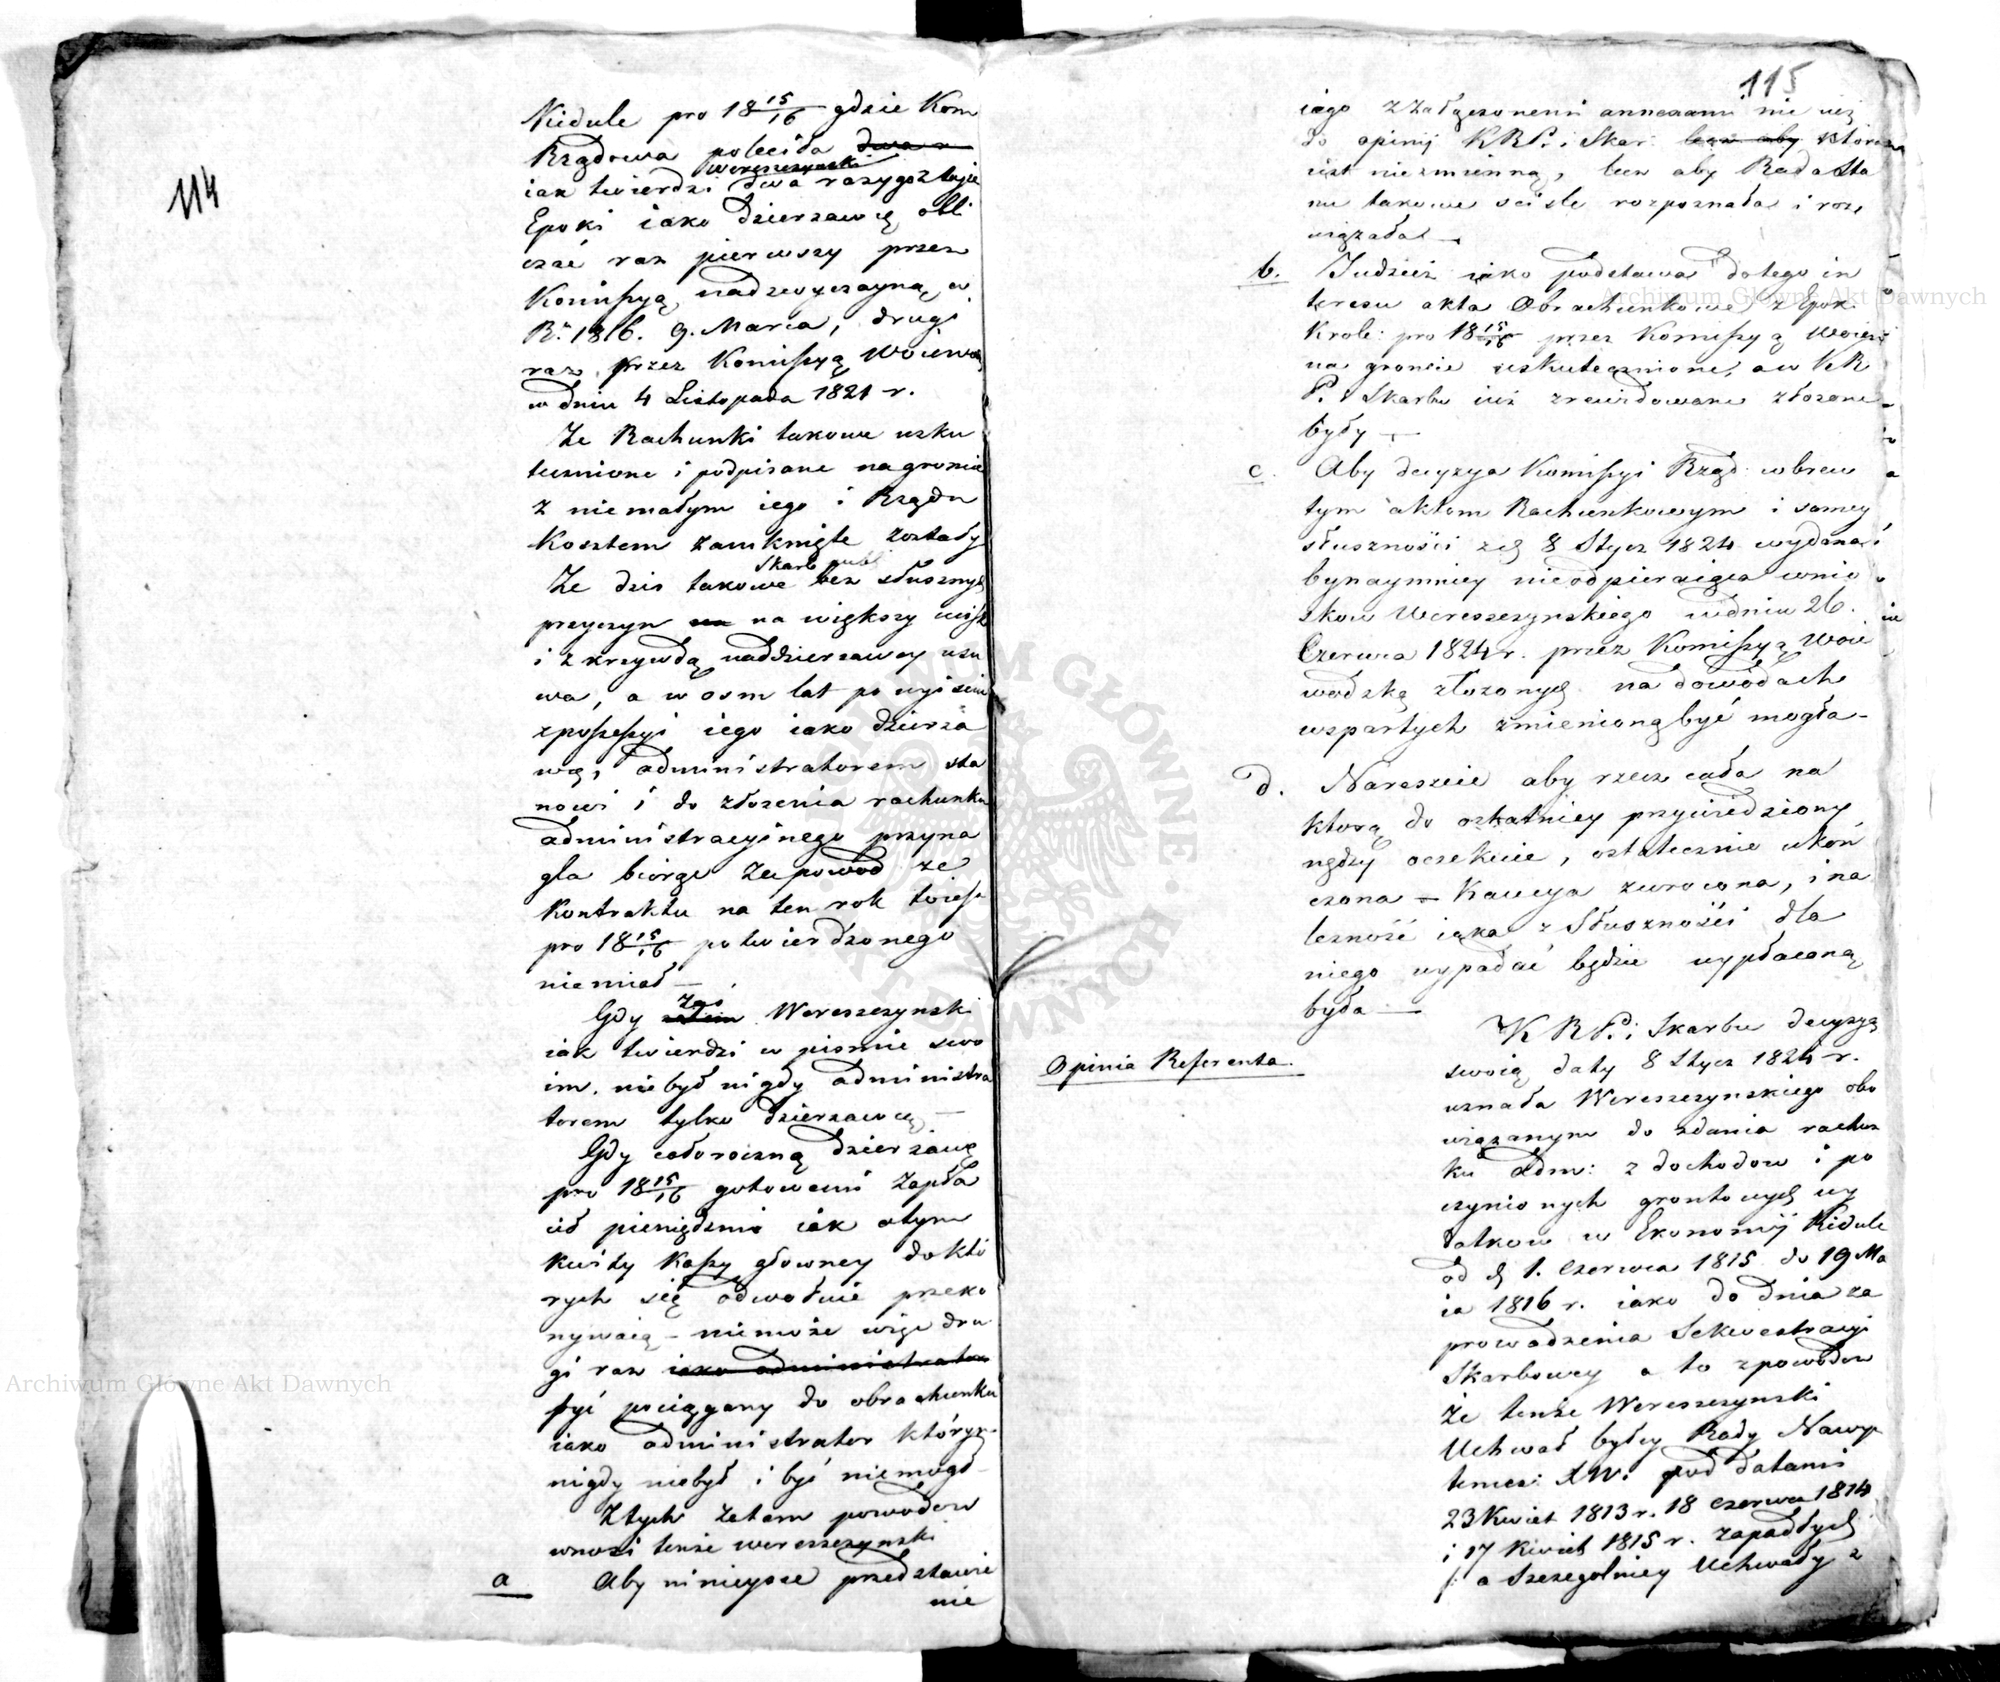 114
Kidule pro 18 15/16 gdzie Kom
Rządowa poleciła dwa r
Wereszczynski
iak twierdzi dwa razy go z teyże
Epoki iako Dzierzawcę obli
czać raz pierwszy przez
Komissyą nadzwyczayną w
R. 1816. 9. Marca, drugi
raz przez Komissyą Woiewo
w dniu 4 Listopada 1821 r.
Ze Rachunki takowe usku
tecznione i podpisane na groncie
z niemałym iego i Rządu
Kosztem zamknięte zostały
Skarb publ
Ze dziś takowe bez słusznych
przyczyn na większy
i z krzywdą naddzierzawcy usu
wa, a w osm lat po wyisciu
z possessyi iego iako dzierza
wcę, administratorem sta
nowi i do złozenia rachunku
administracyinego przyna
gla biorąc za powod ze
Kontraktu na ten rok toiest
pro 18 15/16 potwierdzonego
niemiał —
Gdy zaś zatem Wereszczynski
iak twierdzi w pismie swo
im, niebył nigdy administra
torem tylko dzierzawcą —
Gdy całoroczną Dzierzawę
pro 18 15/16 gotowemi zapła
cił pieniędzmi iak o tym
kwity Kassy głowney do któ
rych się odwołuie przeko
nywaią — niemoże więc dru
gi raz iako administrator
być pociągany do obrachunku
iako administrator którym
nigdy niebył i być niemogł
Z tych zatem powodow
wnosi tenże Wereszczynski
a Aby ninieysze przedstawie
nie
115
iego z załączonemi annexami nie iuż
do opinij KRP. i Skar: lecz aby która
iest niezmienną, lecz aby Rada Sta
nu takowe scisle rozpoznała i roz
wiązała —
b. Tudzież iako podstawa do tego in
teresu akta Obrachunkowe z Epok.
Krole: pro 18 15/16 przez Komissyą Woiew
na groncie uskutecznione, a w K R
P. i Skarbu iuż zrewidowane złozone
były —
c. Aby decyzya Komissyi Rząd: wbrew
tym aktom Rachunkowym i samey
słuszności z d. 8 Stycz 1824 wydana
bynaymniey nieodpieraiąca wnio
skow Wereszczynskiego w dniu 26.
Czerwca 1824 r. przez Komissyą Woie
wodzką złozonych na dowodach
wspartych zmienioną być mogła —
d. Nareszcie aby rzecz cała na
ktorą do ostatniey przywiedziony
nędzy oczekuie, ostatecznie ukoń
czona — Kaucya zwrocona, i na
leżność iaka z Słuszności dla
niego wypadać będzie wypłaconą
była —
Opinia Referenta.
K R P. i Skarbu decyzyą
swoią daty 8 Stycz 1824 r.
uznała Wereszczynskiego obo
wiązanym do zdania rachun
ku adm: z dochodow i po
czynionych grontowych wy
datkow w Ekonomij Kidule
od d. 1. Czerwca 1815 do 19 Ma
ia 1816 r. iako do dnia za
prowadzenia Sekwestracyi
Skarbowey a to z powodow
Że tenże Wereszczynski
Uchwał byłey Rady Nawy
tmcz: X W. pod datami
23 Kwiet 1813 r. 18 Czerwca 1814
i 17 Kwiet 1815 r. zapadłych
/: a Szczegolniey Uchwały z
Archiwum Główne Akt Dawnych
Archiwum Główne Akt Dawnych
ARCHIWUM GŁÓWNE AKT DAWNYCH